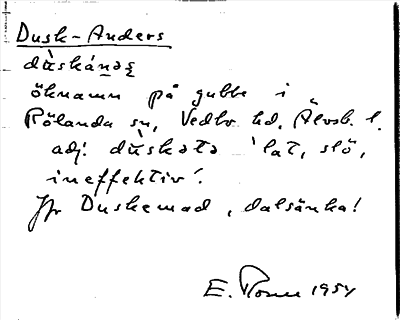 Dusk-Anders
dùskánəş
öknamn på gubbe i
Rölanda sn, Vedbo hd, Älvsb. l.
adj. dùskətə 'lat, slö,
ineffektiv'.
Jfr Duskemad, dalsänka!
E. 1954